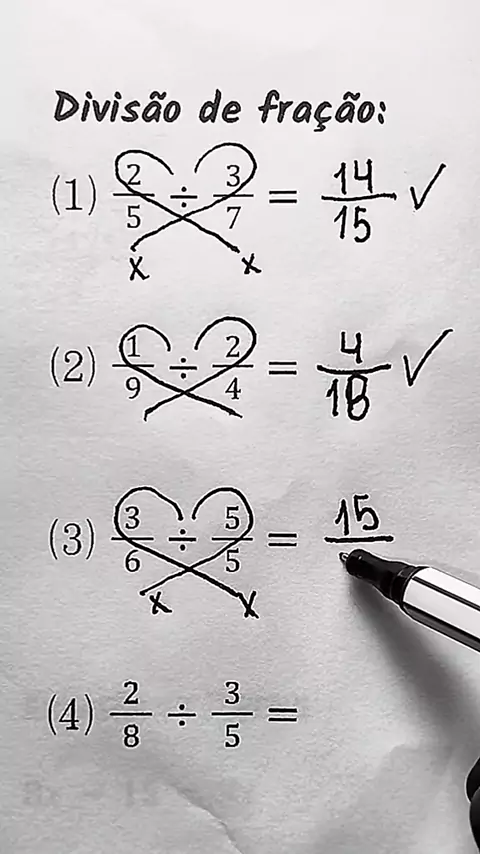 Divisão de fração:
(1) 2/5 ÷ 3/7 = 14/15 ✓
x x
(2) 1/9 ÷ 2/4 = 4/18 ✓
(3) 3/6 ÷ 5/5 = 15/
x x
(4) 2/8 ÷ 3/5 =